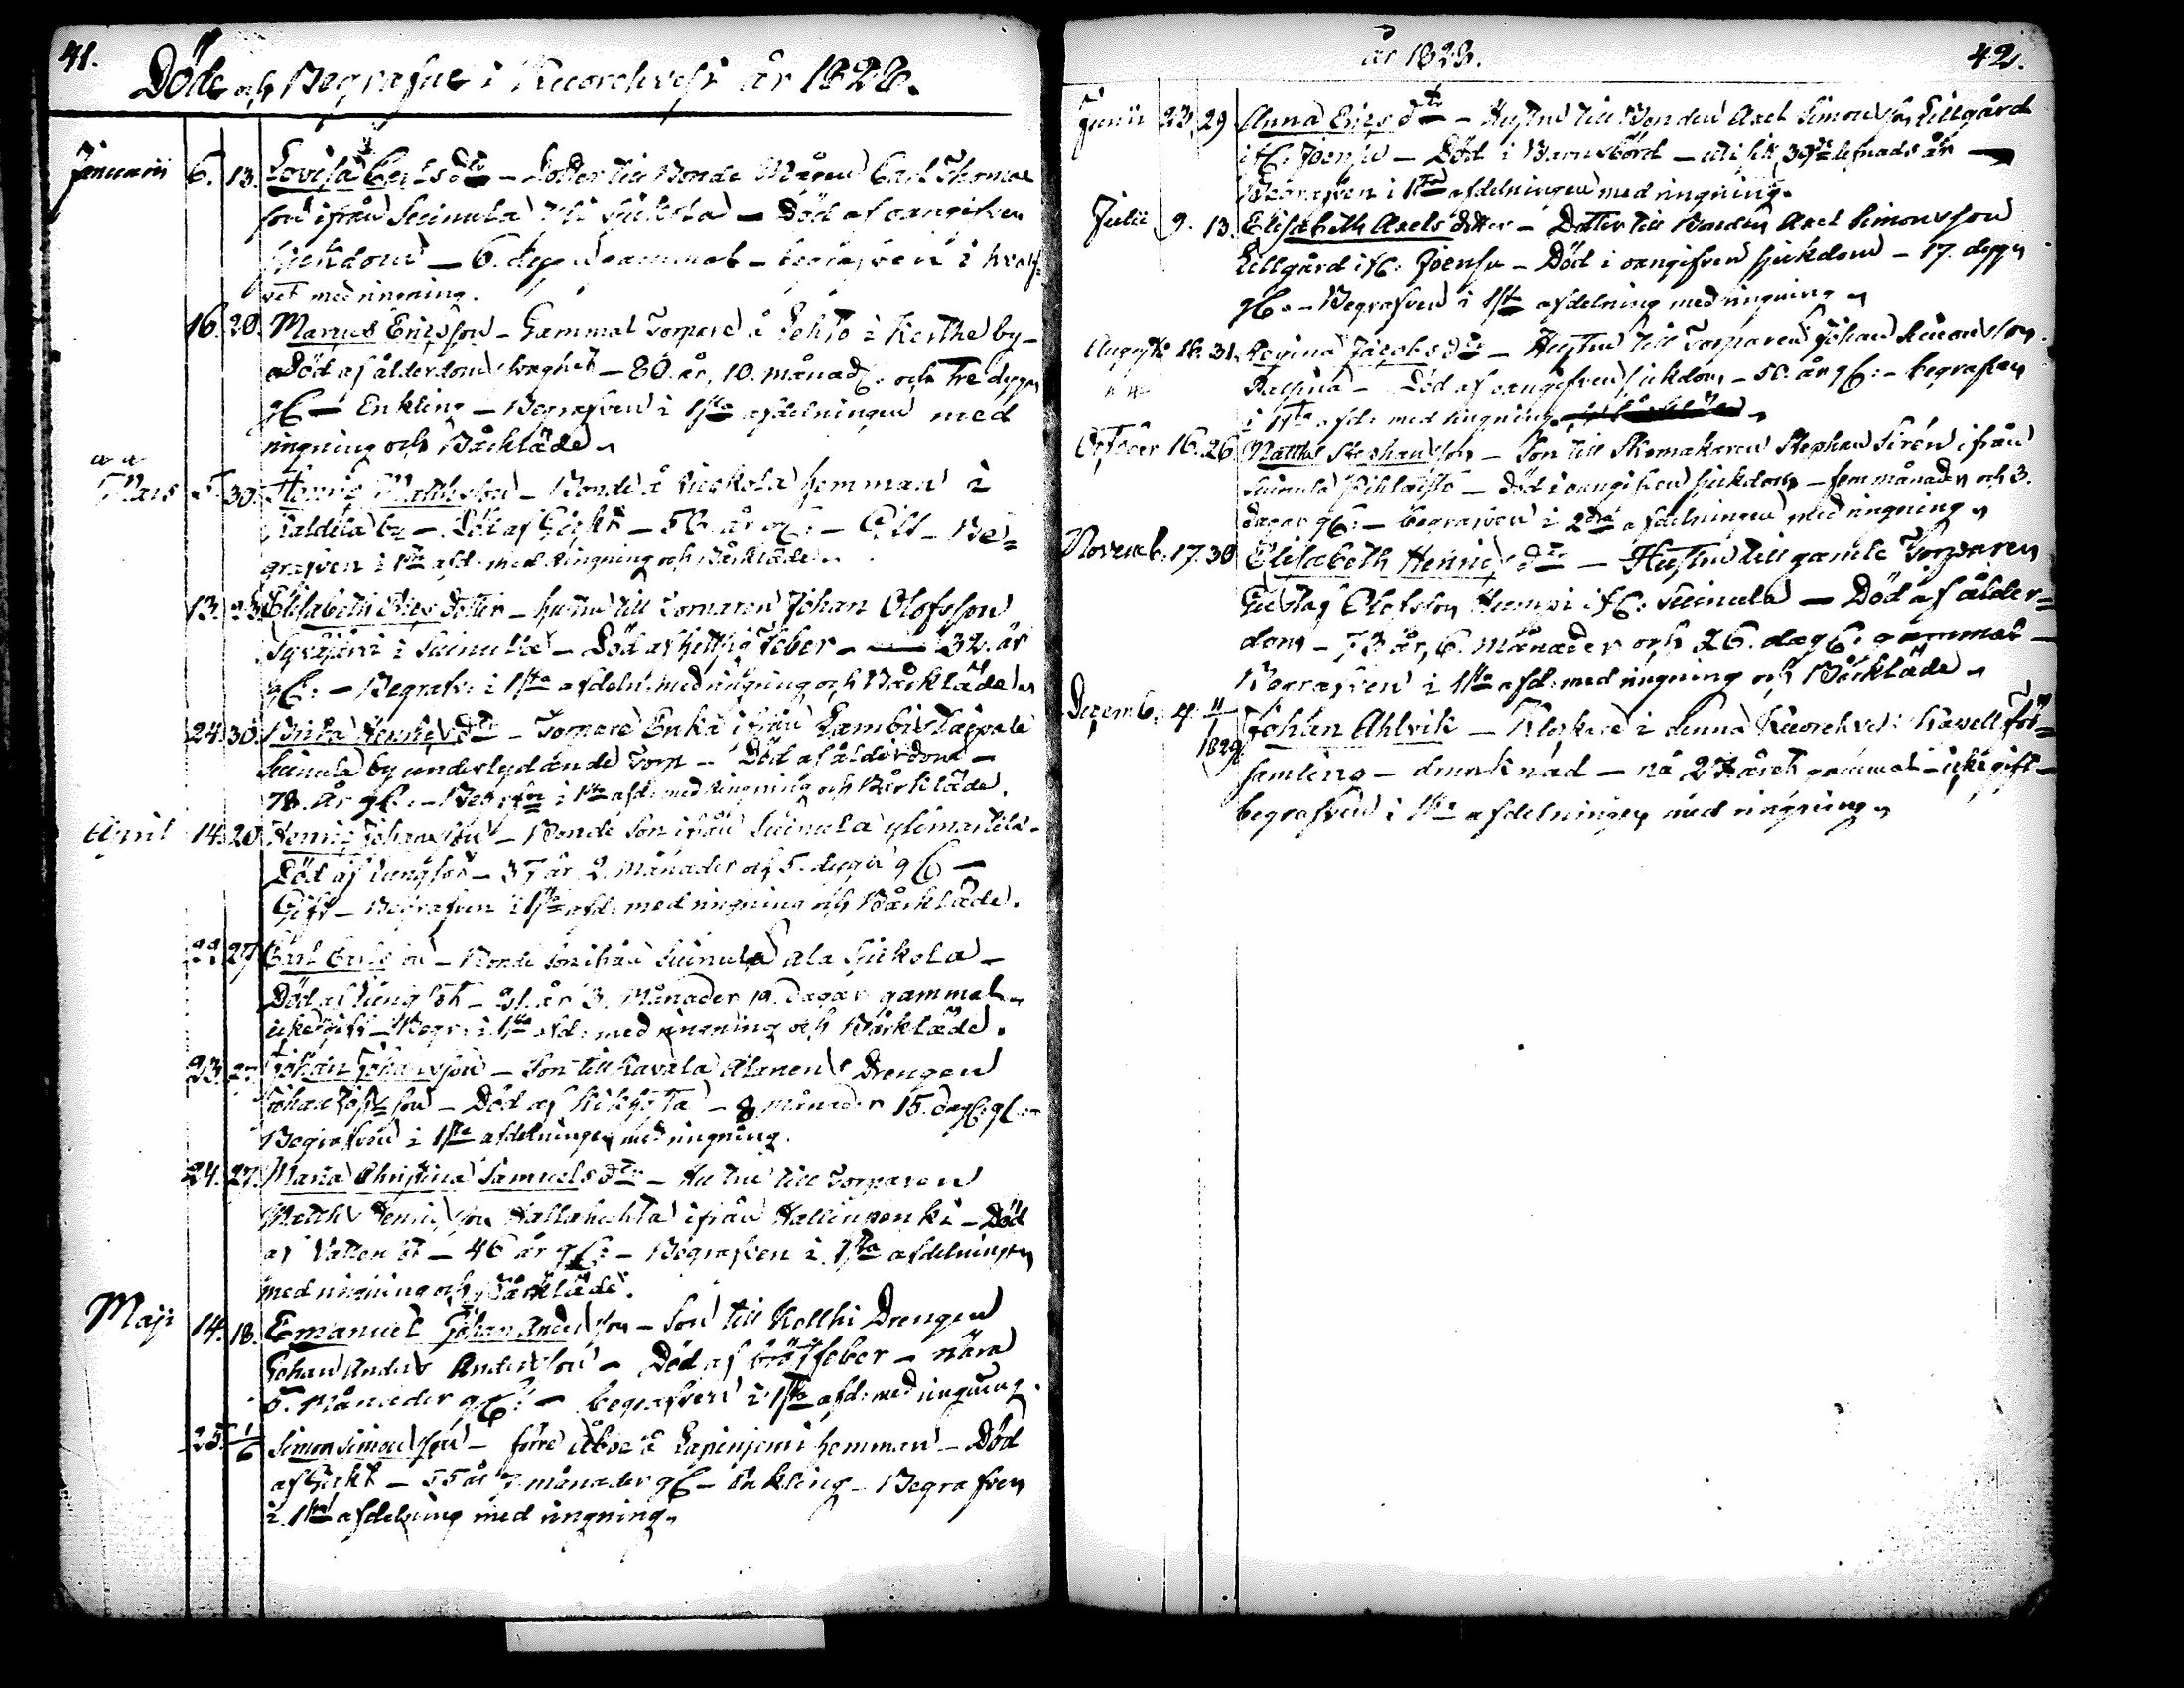 41.
Döde och Begrafne i Kuorehvesi år 1828.
Januarii 6. 13. Lovisa Carls dtr – Dotter till Bonde Mågen Carl Thomas
son ifrån Suinula Yli Sjukola – Död af oangifven
Sjukdom – 6. dygn gammal – begrafven i hvalf
vet med ringning.
16. 20. Marcus Ericsson – Gammal Torpare å Pohto i Kerthe by –
Död af ålderdoms svaghet – 80. år, 10. månad: och Tre dygn
gl – Enkling – Begrafven i 1sta afdelningen med
ringning och Bårkläde
Mars 5 30. Henric Mattsson – Bonde å hemman i
by – Död af Gickt – 56. år gl: – Gift – Be=
grafven i 1sta afd: med Ringning och Bårkläde.
13. 23. Elisabeth Ericsdotter – hustru till Torparen Johan Olofsson
i Suinula – Död af hetsig feber – 32. år
gl: – Begrafv: i 1sta afdeln: med ringning och Bårkläde
24. 30. Henrics dtr – Torpare Enka ifrån Taipale
Suinula by underlydande Torp – Död af ålderdom –
78. år gl: – Begrfn i 1sta afd: med Ringning och Bårkläde.
April 14. 20. Henric Johansson – Bonde Son ifrån Suinula –
Död af Lungsot – 37 år 2. Månader och 5. dygn gl –
Gift – Begrafven i 1sta afd: med ringning och Bårkläde.
22. 27. Carl Carlsson – Bonde Son ifrån Suinula ala Sjukola –
Död af Lungsot – 21. år 3. Månader 19. dagar gammal
icke gift – Begr: i 1sta afd: med ringning och Bårkläde.
23. 27. Johan Johansson – Son till Havala Alanens Drengen
Johan – Död af Kikhosta – 8 månader 15. dag: gl:
Begrafven i 1sta afdelningen med ringning.
24. 27. Maria Christina Samuels dtr – Hustru till Torparen
Matth: Henricsson Hallahuhta ifrån Hallinpenki – Död
af Vattensot – 46 år gl: – Begrafven i 1sta afdelningen
med ringning och Bårkläde.
Maji 14. 18. Emanuel Johan Andersson – Son till Kollki Drengen
Johan Anders Andersson – Död af bröstfeber – nära
5. Månader gl: – begrafven i 1sta afd: med ringning.
25. 1/6 Simon Simonsson – förre åboe å Lapinjemi hemman – Död
af Gickt – 55 år 7. månader gl – Enkling – Begrafven
i 1sta afdelning med ringning.
år 1828.
42.
Junii 23. 29 Anna Erics dtr – Hustru till Bonden Axel Simonsson Lillgård
i K: Joensu – Död i Barnsbörd – uti sitt 39de lefnads år –
Begrafven i 1sta afdelningen med ringning.
Julii 9. 13. Elisabeth Axels dotter – Dotter till Bonden Axel Simonsson
Lillgård i K: Joensu – Död i oangifven sjukdom – 17. dygn
gl: – Begrafven i 1sta afdelning med ringning
Augusti 16. 31. Regina Jacobs dtr – Hustru till Torparen Johan Simonsson
– Död af oangifven sjukdom – 50. år gl: – begrafven
i 1sta afd: med ringning
October 16. 26 Matths Stephansson – Son till Skomakaren Stephan Sirén ifrån
Suinula Pihlaisto – Död i oangifven sjukdom – fem månader och 3.
dagar gl: – begrafven i 2dra afdelningen med ringning
Novemb. 17. 30 Elisabeth Henrics dtr – Hustru till gamle Torparen
Gustaf Olofsson Kumpi i K: Suinula – Död af ålder=
dom – 73 år, 6. Månader och 26. dag: gammal –
Begrafven i 1sta afd: med ringning och Bårkläde
Decemb: 4. 11/1 1829. Johan Ahlvik – Klockare i denna Kuorehvesi Kapell för=
samling – – på 27 året gammal – icke gift –
begrafven i 1sta afdelningen med ringning